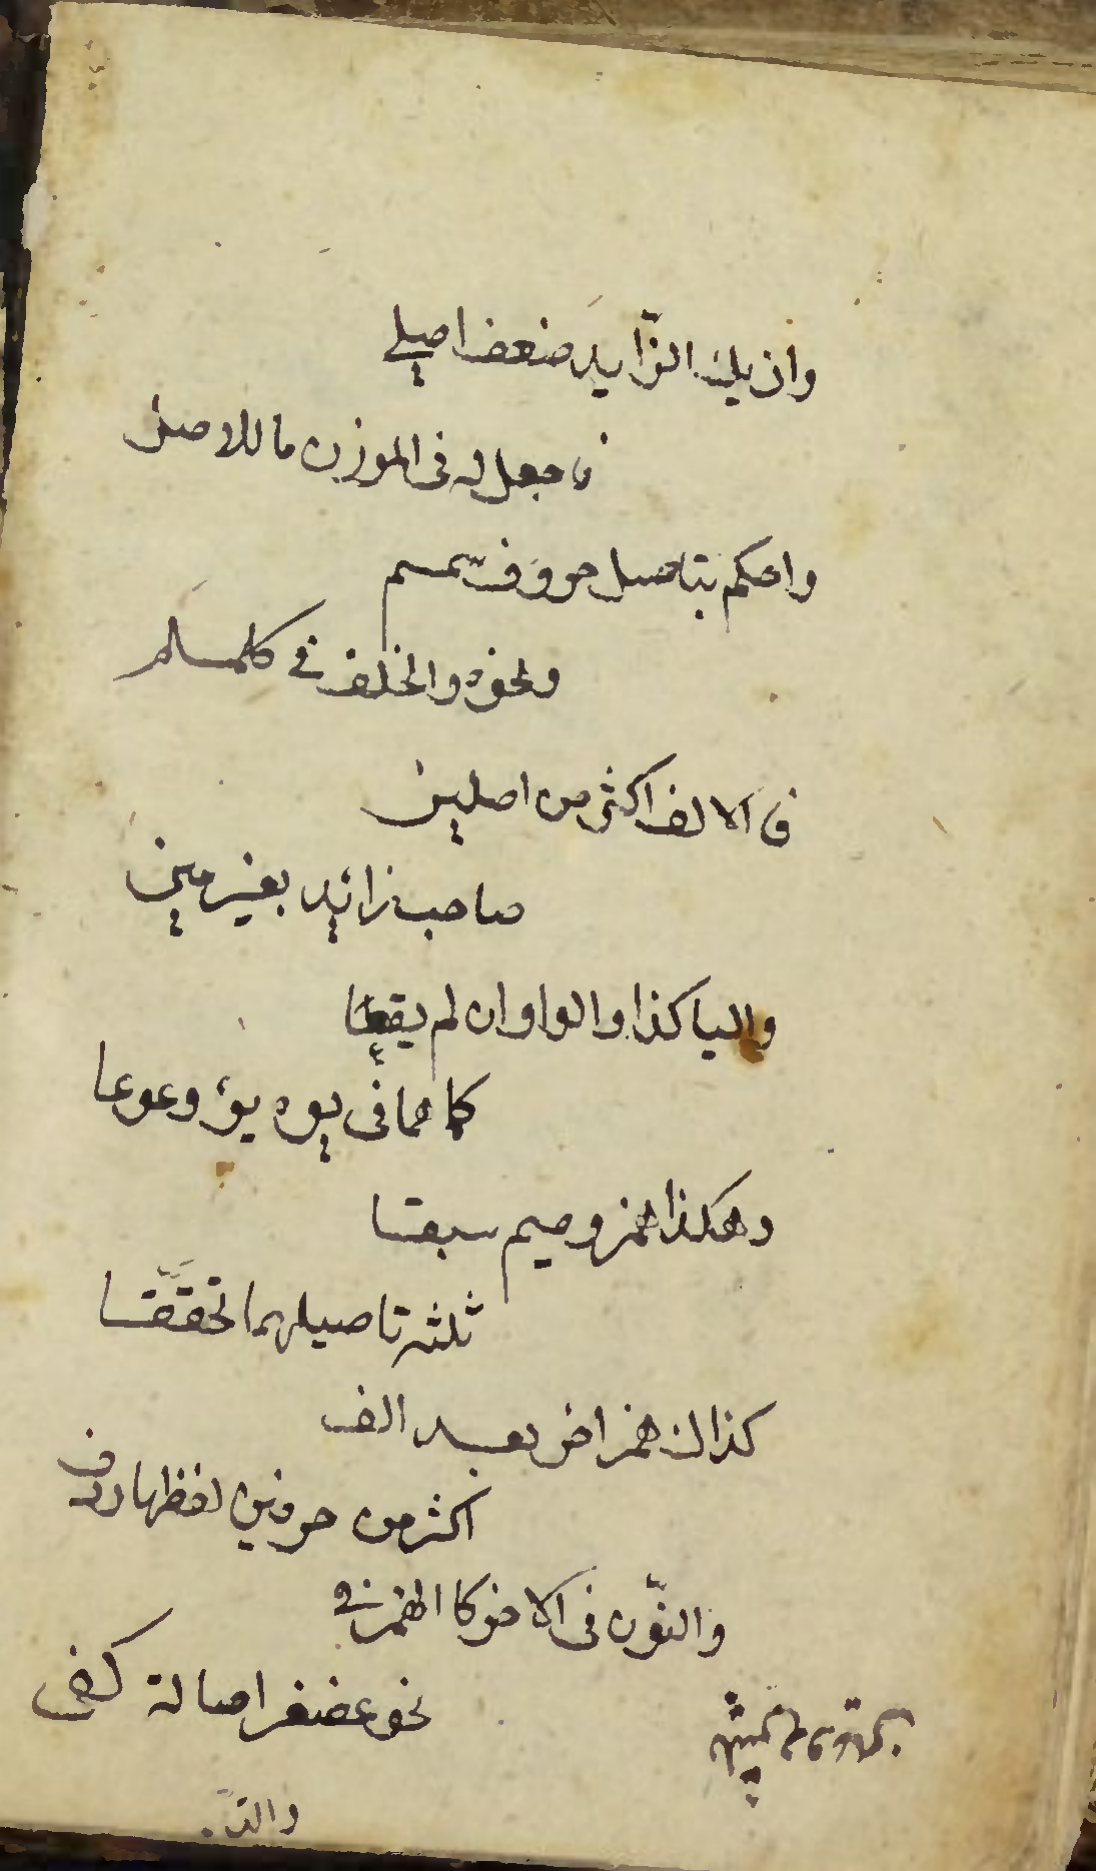 وان يك الزّايد ضعف اصلي
فاجعل له فى الموزن ما للاصل
واحكم بتاصيل حروف سمسم
ونحوه والخلف في كلملم
فالالف اكثر من اصلين
صاحب زائد بغير مين
واليا كذا والواو ان لم يقعا
كما هما فى يوه يؤ وعوعا
وهكذا همز وميم سبقا
ثلثه تاصيلهما تحقّقا
كذاك همز اخر بعد الف
اكثر من حرفين لفظها ردف
والنّون فى الاخر كالهمز في
نحو غضنفر اصالة كفى
والتّا